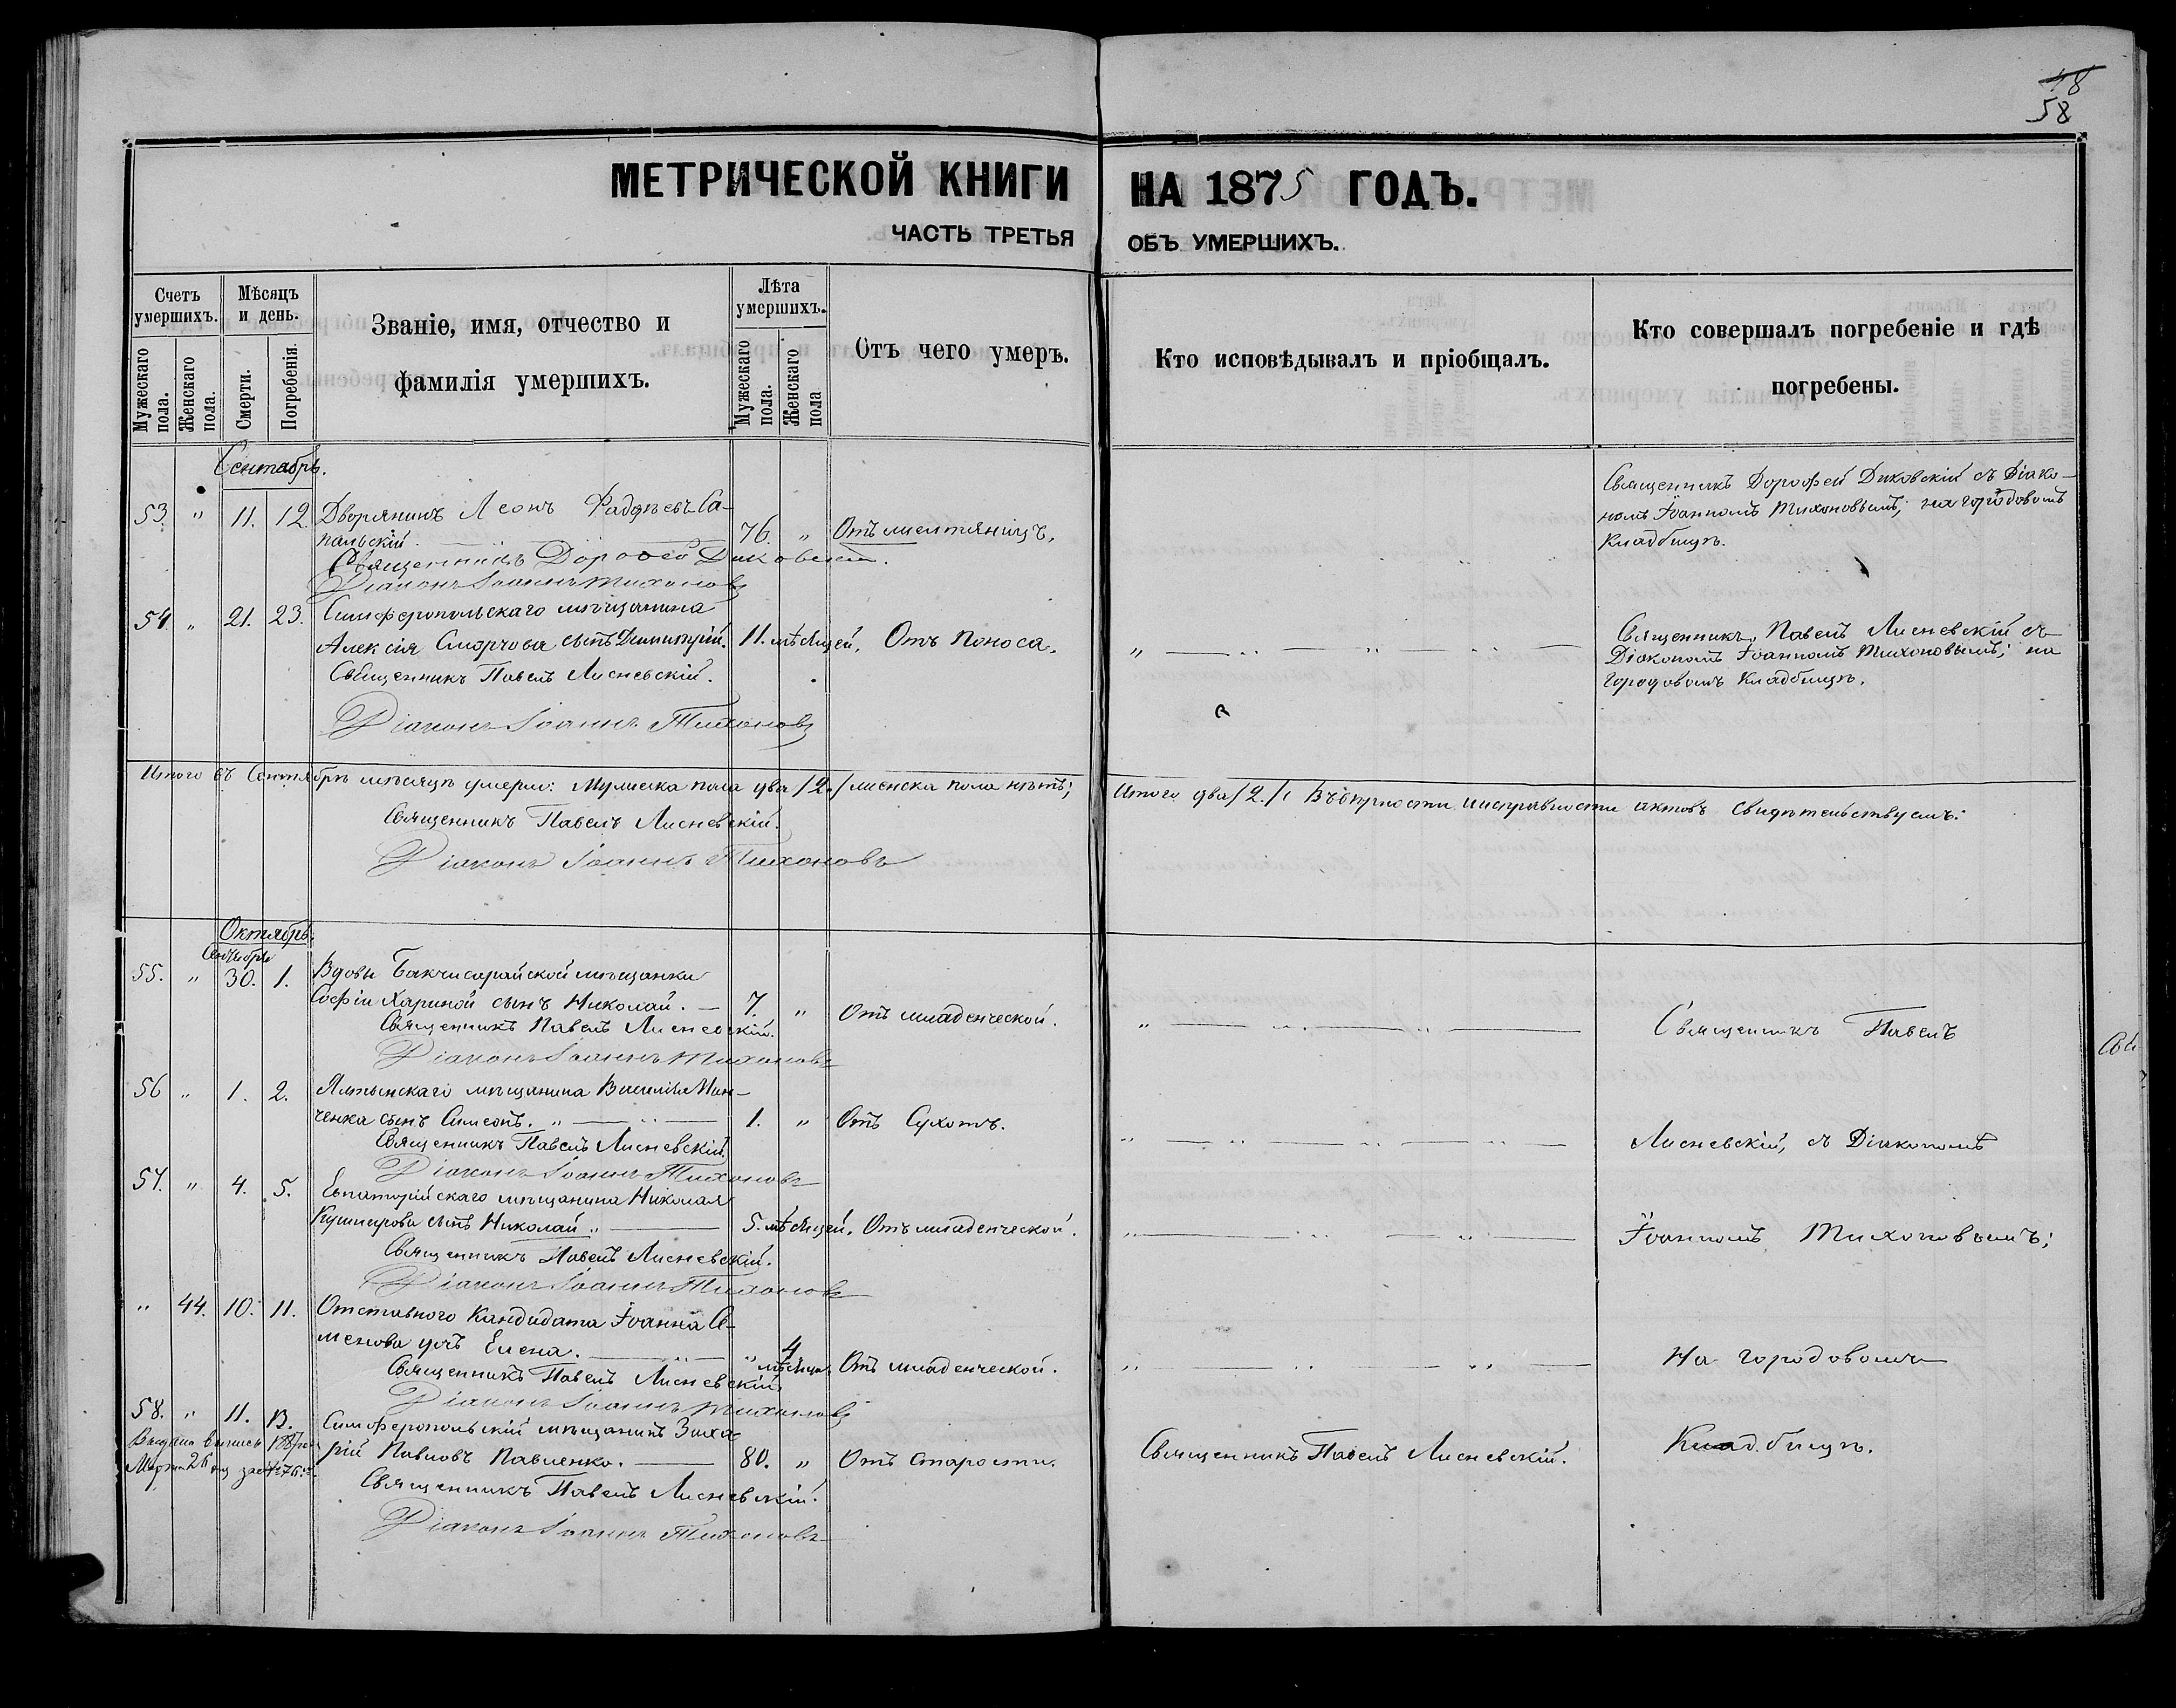 48
58
МЕТРИЧЕСКОЙ КНИГИ НА 1875 ГОДЪ.
ЧАСТЬ ТРЕТЬЯ ОБЪ УМЕРШИХЪ.
Счетъ умершихъ.
Мужескаго пола.
Женскаго пола.
Мѣсяцъ и день.
Смерти.
Погребенія.
Званіе, имя, отчество и
фамилія умершихъ.
Лѣта умершихъ.
Мужескаго пола.
Женскаго пола
Отъ чего умеръ.
Кто исповѣдывалъ и пріобщалъ.
Кто совершалъ погребеніе и гдѣ
погребены.
Сентабрь.
53. " 11. 12. Дворянинъ Леонъ Фадѣевъ Са-
пальскій 76. "
Священникъ Дорофей Диковскій.
Діаконъ Іоаннъ Тихоновъ
Священникъ Дорофей Диковскій съ Діако-
номъ Іоанномъ Тихоновымъ; на городовомъ
Кладбищѣ.
54. " 21. 23. Симферопольскаго мѣщанина
Алексія Сморчова сынъ Димитрій. 11. мѣсяцей. Отъ поноса.
Священникъ Павелъ Лисневскій.
Діаконъ Іоаннъ Тихоновъ
Священникъ Павелъ Лисневскій съ
Діакономъ Іоанномъ Тихоновымъ; на
городовомъ Кладбищѣ.
Итого въ Сентябрѣ мѣсяцѣ умерло: Мужеска пола два /2./ женска пола нѣтъ; Итого два /2./ Вѣрности и исправности актовъ свидѣтельствуемъ:
Священникъ Павелъ Лисневскій.
Діаконъ Іоаннъ Тихоновъ
Октябрь.
Сентябрь
55. " 30. 1. Вдовы Бакчисарайской мѣщанки
Софіи Хариной сынъ Николай. 7. " Отъ младенческой.
Священникъ Павелъ Лисневскій.
Діаконъ Іоаннъ Тихоновъ
Священникъ Павелъ
56 " 1. 2. Ялтынскаго мѣщанина Василія Мин-
ченка сынъ Симеонъ. " 1. " Отъ Сухотъ.
Священникъ Павелъ Лисневскій.
Діаконъ Іоаннъ Тихоновъ
Лисневскій, съ Діакономъ
57. " 4. 5. Евпаторійскаго мѣщанина Николая
Кушнирова сынъ Николай. 5. мѣсяцей. Отъ младенческой.
Священникъ Павелъ Лисневскій.
Діаконъ Іоаннъ Тихоновъ
Іоанномъ Тихоновымъ;
" 44. 10. 11. Отставного Кандидата Іоанна Се-
менова дочь Елена. " 4 мѣсяца. Отъ младенческой.
Священникъ Павелъ Лисневскій.
Діаконъ Іоаннъ Тихоновъ
На городовомъ
58. " 11. 13. Симферопольскій мѣщанинъ Заха
рій Павловъ Павленко. 80. " Отъ старости. Священникъ Павелъ Лисневскій.
Священникъ Павелъ Лисневскій.
Діаконъ Іоаннъ Тихоновъ
Кладбищѣ.
Марта 26